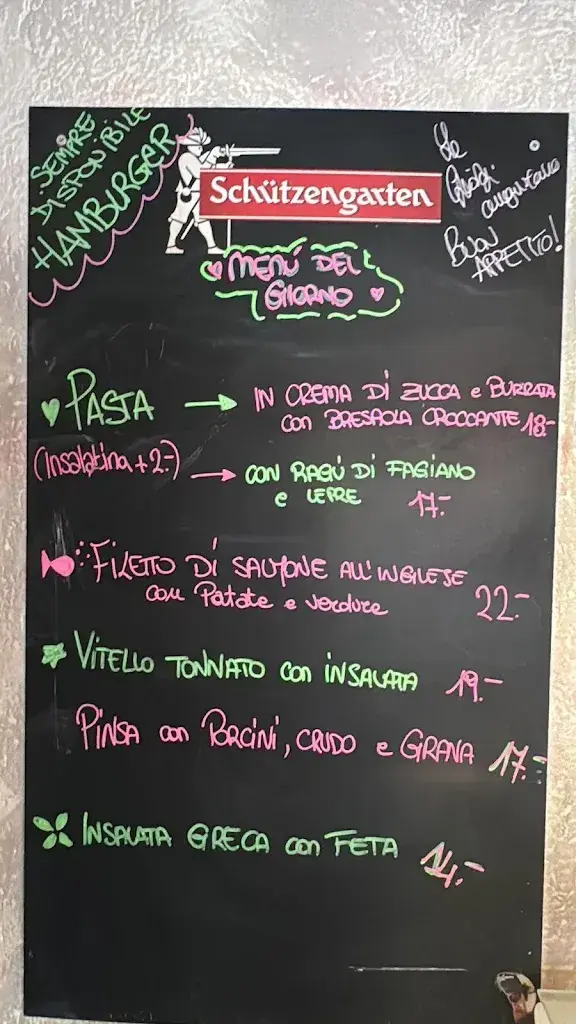 SEMPRE
DISPONIBILE
HAMBURGER
Schützengarten
augurano
BUON
APPETITO!
MENÚ DEL
GIORNO
PASTA → IN CREMA DI ZUCCA e BURRATA
con BRESAOLA CROCCANTE 18.-
(insalatina + 2.-) → CON RAGÚ DI FAGIANO
e LEPRE 17.-
FILETTO DI SALMONE ALL'INGLESE
con Patate e verdure 22.-
VITELLO TONNATO con INSALATA 19.-
PINSA con PORCINI, CRUDO e GRANA 17.-
INSALATA GRECA con FETA 14.-